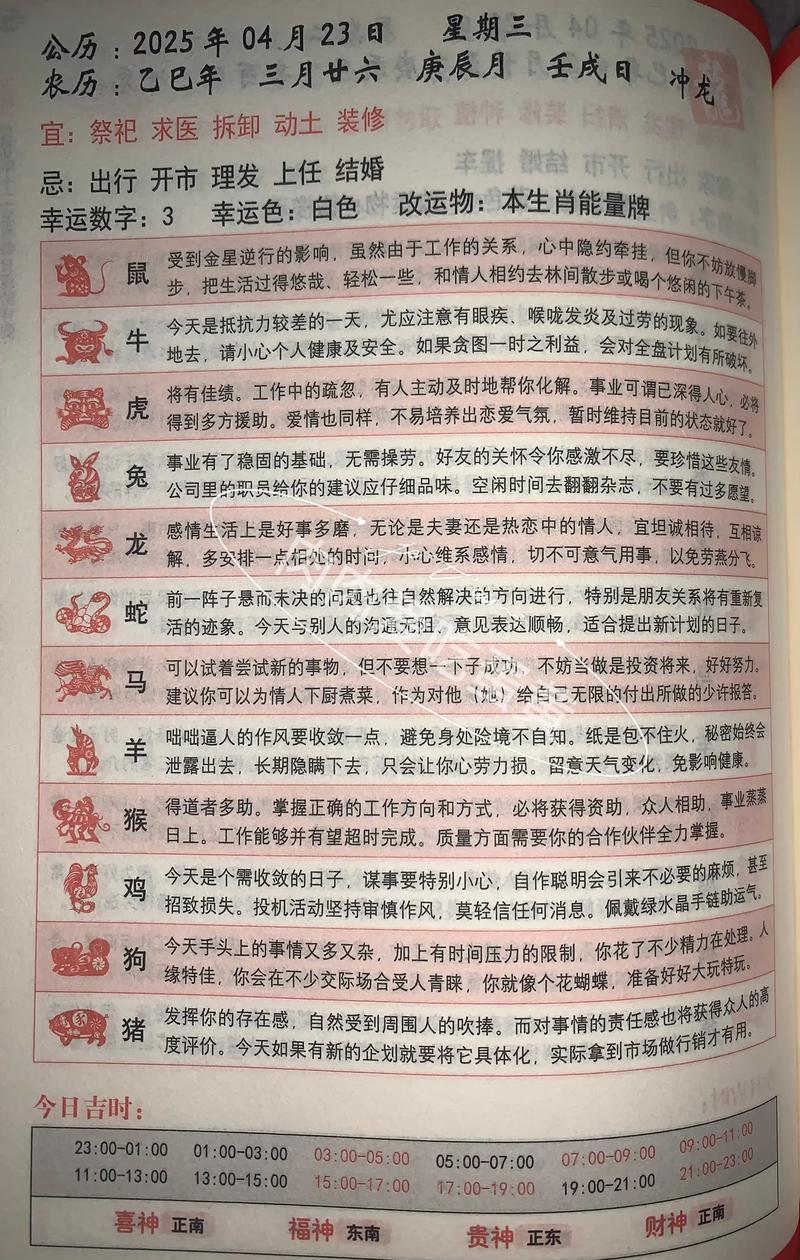 公历：2025年04月23日 星期三
农历：乙巳年 三月廿六 庚辰月 壬戌日 冲龙
宜：祭祀 求医 拆卸 动土 装修
忌：出行 开市 理发 上任 结婚
幸运数字：3 幸运色：白色 改运物：本生肖能量牌
鼠
受到金星逆行的影响，虽然由于工作的关系，心中隐约牵挂，但你不妨放慢脚
步，把生活过得悠哉、轻松一些，和情人相约去林间散步或喝个悠闲的下午茶。
牛
今天是抵抗力较差的一天，尤应注意有眼疾、喉咙发炎及过劳的现象。如要往外
地去，请小心个人健康及安全。如果贪图一时之利益，会对全盘计划有所破坏。
虎
将有佳绩。工作中的疏忽，有人主动及时地帮你化解。事业可谓已深得人心，必将
得到多方援助。爱情也同样，不易培养出恋爱气氛，暂时维持目前的状态就好了。
兔
事业有了稳固的基础，无需操劳。好友的关怀令你感激不尽，要珍惜这些友情。
公司里的职员给你的建议应仔细品味。空闲时间去翻翻杂志，不要有过多愿望。
龙
感情生活上是好事多磨，无论是夫妻还是热恋中的情人，宜坦诚相待，互相谅
解，多安排一点相处的时间，小心维系感情，切不可意气用事，以免劳燕分飞。
蛇
前一阵子悬而未决的问题也往自然解决的方向进行，特别是朋友关系将有重新复
活的迹象。今天与别人的沟通无阻、意见表达顺畅，适合提出新计划的日子。
马
可以试着尝试新的事物，但不要想一下子成功，不妨当做是投资将来，好好努力。
建议你可以为情人下厨煮菜，作为对他（她）给自己无限的付出所做的少许报答。
羊
咄咄逼人的作风要收敛一点，避免身处险境不自知。纸是包不住火，秘密始终会
泄露出去，长期隐瞒下去，只会让你心劳力损。留意天气变化，免影响健康。
猴
得道者多助。掌握正确的工作方向和方式，必将获得资助，众人相助，事业蒸蒸
日上。工作能够并有望超时完成。质量方面需要你的合作伙伴全力掌握。
鸡
今天是个需收敛的日子，谋事要特别小心，自作聪明会引来不必要的麻烦，甚至
招致损失。投机活动坚持审慎作风，莫轻信任何消息。佩戴绿水晶手链助运气。
狗
今天手头上的事情又多又杂，加上有时间压力的限制，你花了不少精力在处理。人
缘特佳，你会在不少交际场合受人青睐，你就像个花蝴蝶，准备好好大玩特玩。
猪
发挥你的存在感，自然受到周围人的吹捧。而对事情的责任感也将获得众人的高
度评价。今天如果有新的企划就要将它具体化，实际拿到市场做行销才有用。
今日吉时：
23:00-01:00 01:00-03:00 03:00-05:00 05:00-07:00 07:00-09:00 09:00-11:00
11:00-13:00 13:00-15:00 15:00-17:00 17:00-19:00 19:00-21:00 21:00-23:00
喜神 正南 福神 东南 贵神 正东 财神 正南